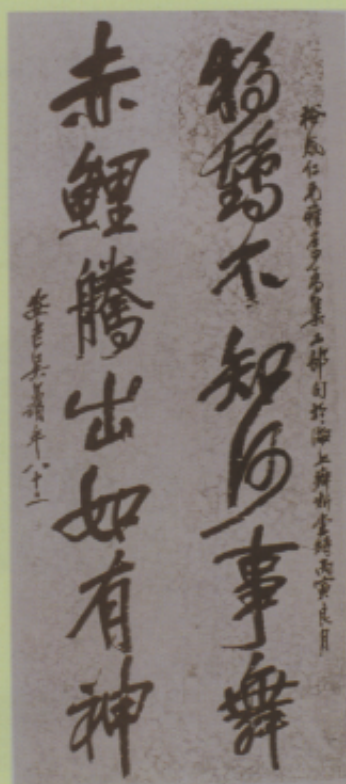 鳳仁兄雅屬為集工部句於海上癖斯堂時丙寅良月
獨鶴不知何事舞
赤鯉騰出如有神
安吉吳昌碩年八十三